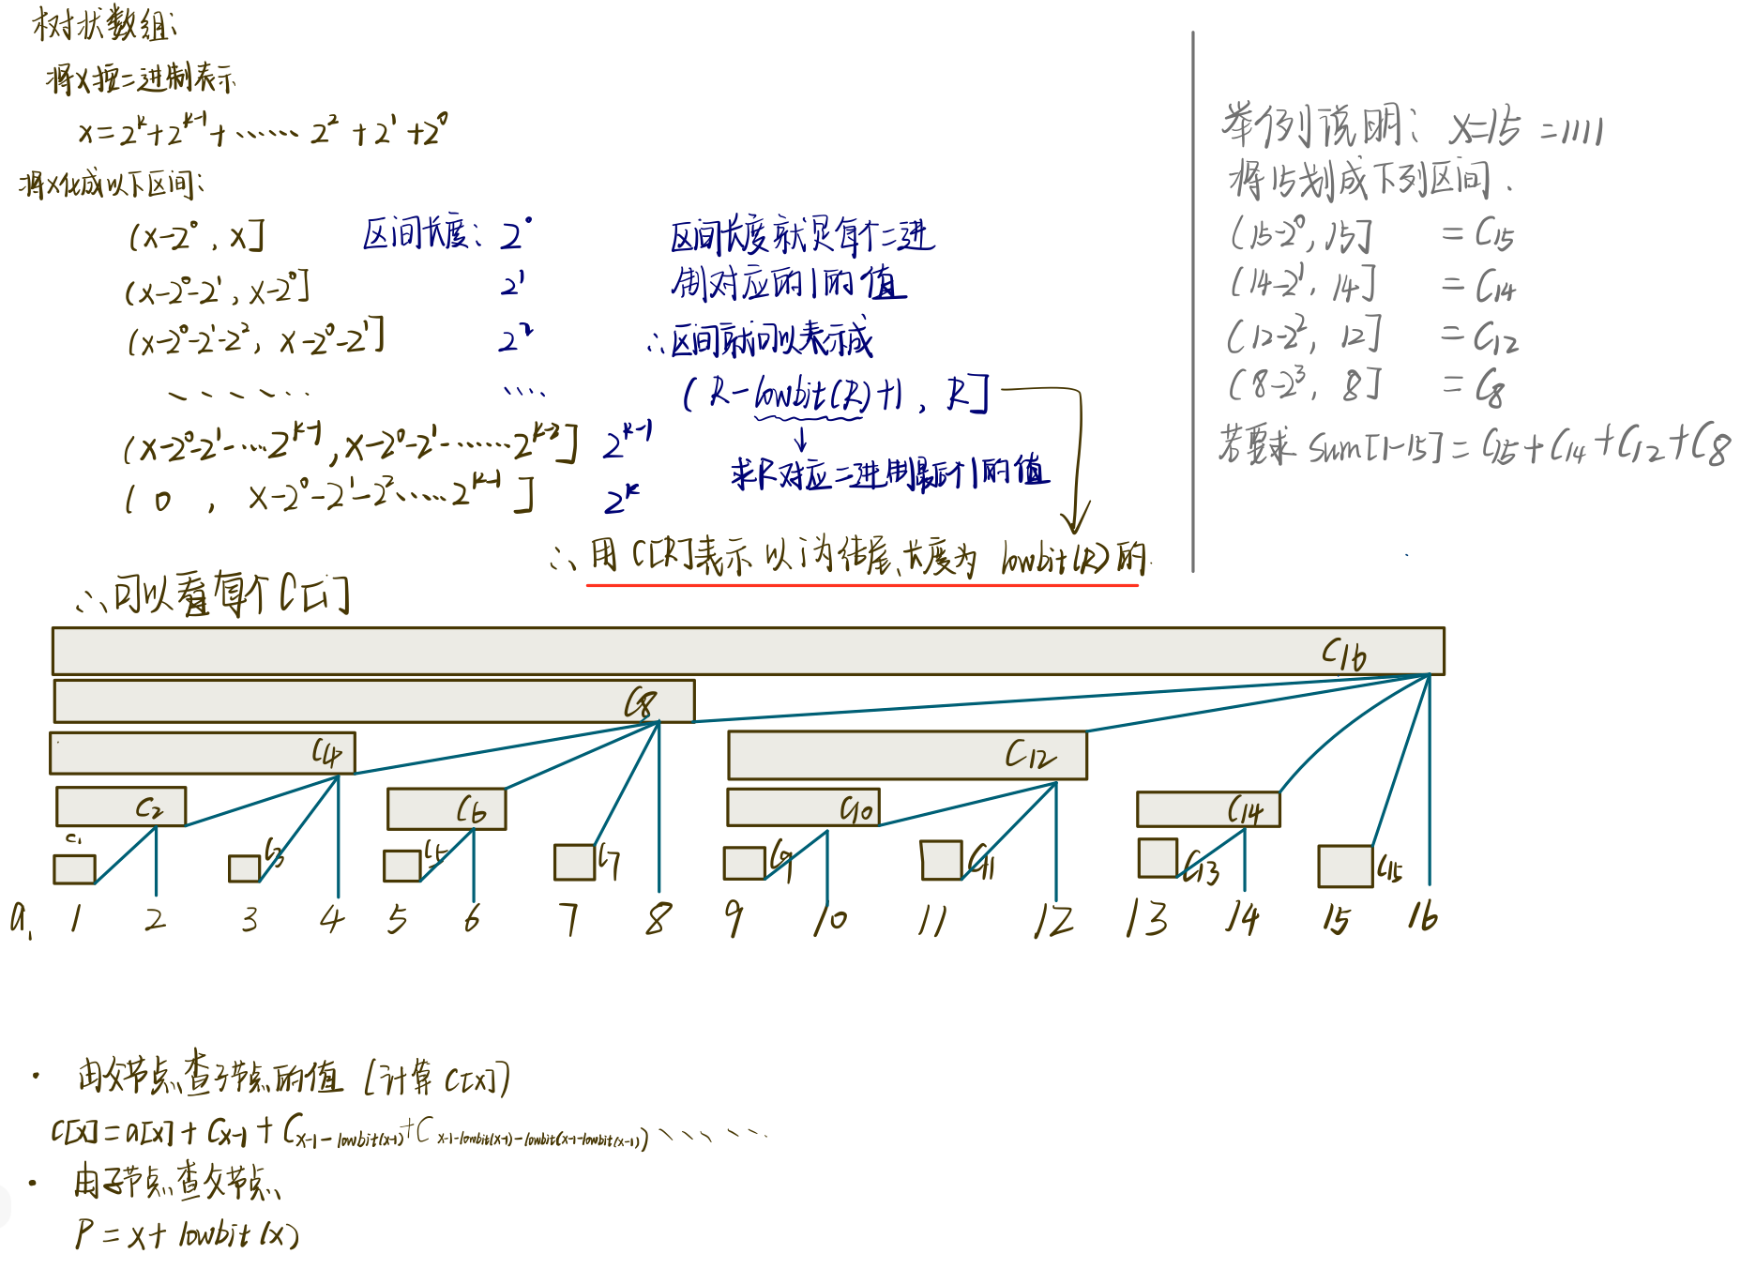 树状数组:
将x按二进制表示
x=2^k+2^(k-1)+…… 2^2+2^1+2^0
将x化成以下区间:
(x-2^0, x] 区间长度: 2^0
(x-2^0-2^1, x-2^0] 2^1
(x-2^0-2^1-2^2, x-2^0-2^1] 2^2
…… …
(x-2^0-2^1-…2^(k-1), x-2^0-2^1-……2^(k-2)] 2^(k-1)
(0, x-2^0-2^1-2^2……2^(k-1)] 2^k
区间长度就是每个二进
制对应的1的值
∴区间就可以表示成
(R-lowbit(R)+1, R]
求R对应二进制最后个1的值
∴用C[R]表示以i为结尾、长度为 lowbit(R)的.
举例说明: x=15 =1111
将15划成下列区间.
(15-2^0, 15] =C15
(14-2^1, 14] =C14
(12-2^2, 12] =C12
(8-2^3, 8] =C8
若要求 Sum[1-15]=C15+C14+C12+C8
∴可以看每个C[i]
C16
C8
C4 C12
C2 C6 C10 C14
C1 C3 C5 C7 C9 C11 C13 C15
a, 1 2 3 4 5 6 7 8 9 10 11 12 13 14 15 16
· 由父节点查子节点的值 [计算C[x])
C[x]=a[x]+Cx-1+Cx-1-lowbit(x-1)+Cx-1-lowbit(x-1)-lowbit(x-1-lowbit(x-1))……
· 由子节点查父节点
P=x+lowbit(x)